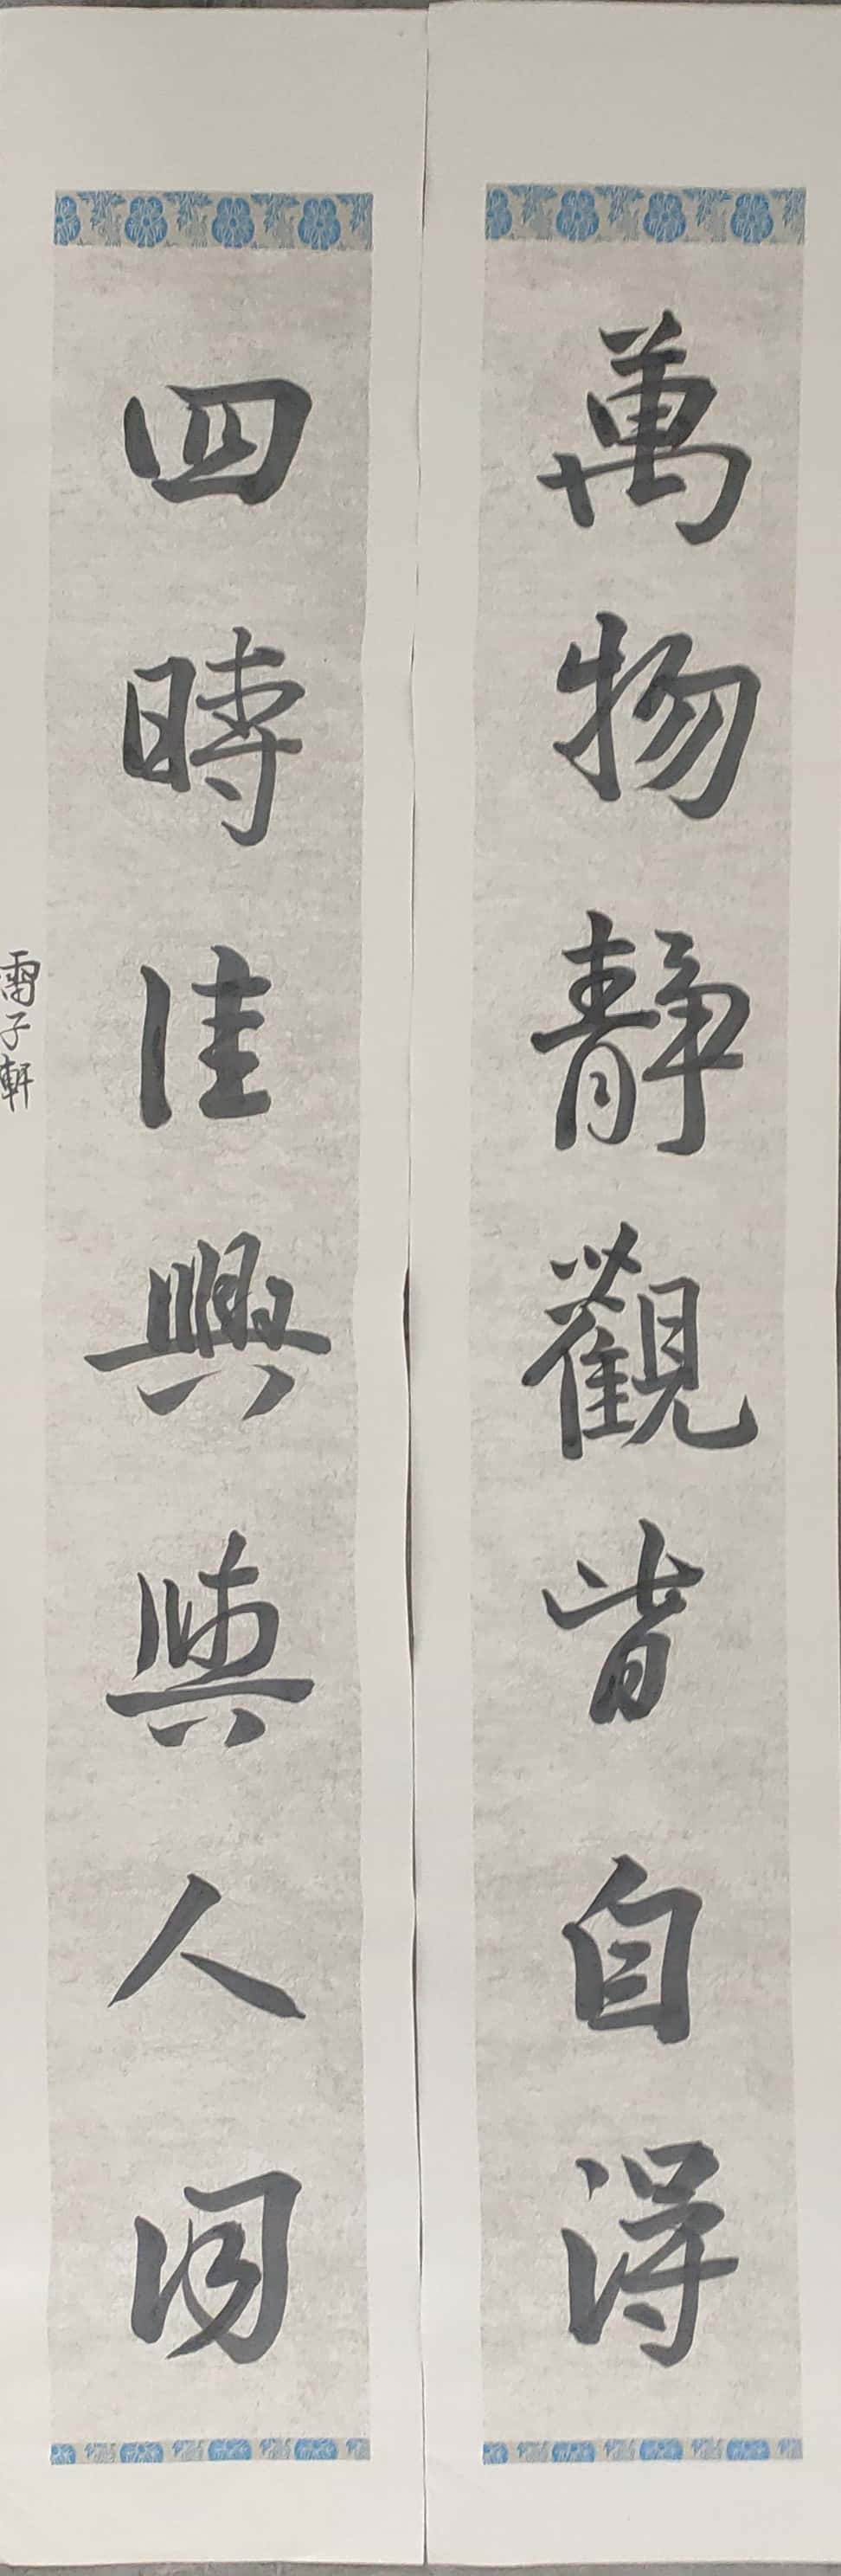 萬物靜觀皆自得
四時佳興與人同
雷子軒